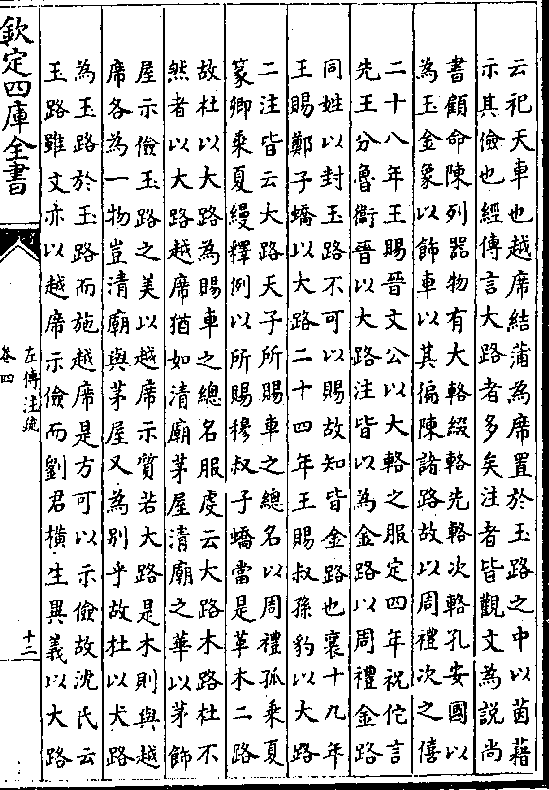 云祀天車也越席結蒲為席置於玉路之中以茵藉
示其儉也經傳言大路者多矣注者皆觀文為説尚
書顧命陳列器物有大輅綴輅先輅次輅孔安國以
為玉金象以飾車以其徧陳諸路故以周禮次之僖
二十八年王賜晉文公以大輅之服定四年祝佗言
先王分魯衞晉以大路注皆以為金路以周禮金路
同姓以封玉路不可以賜故知皆金路也襄十九年
王賜鄭子蟜以大路二十四年王賜叔孫豹以大路
二注皆云大路天子所賜車之總名以周禮孤乘夏
篆卿乘夏縵釋例以所賜穆叔子蟜當是革木二路
故杜以大路為賜車之總名服虔云大路木路杜不
然者以大路越席猶如清廟茅屋清廟之華以茅飾
屋示儉玉路之美以越席示質若大路是木則與越
席各為一物豈清廟與茅屋又為别乎故杜以大路
為玉路於玉路而施越席是方可以示儉故沈氏云
玉路雖文亦以越席示儉而劉君横生異義以大路
欽定四庫全書
左傳注疏
卷四
十二